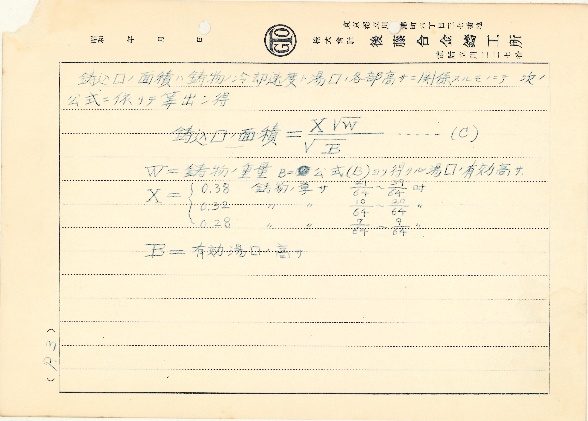 昭和 年 月 日
GTO
株式会社 後藤合金鋳工所
鋳込口ノ面積ハ鋳物ノ冷却速度ト湯口ノ各部高サニ関係スルモノニテ 次ノ
公式ニ依リテ算出シ得
鋳込口ノ面積 = X√W / √B ...... (C)
W = 鋳物ノ重量 B = 公式(B)ヨリ得タル湯口ノ有効高サ
X = { 0.38 鋳物ノ厚サ 21/64 ~ 29/64 吋
0.32 〃 〃 10/64 ~ 20/64 〃
0.28 〃 〃 ~ 9/64 〃
B = 有効湯口ノ高サ
(P.3)